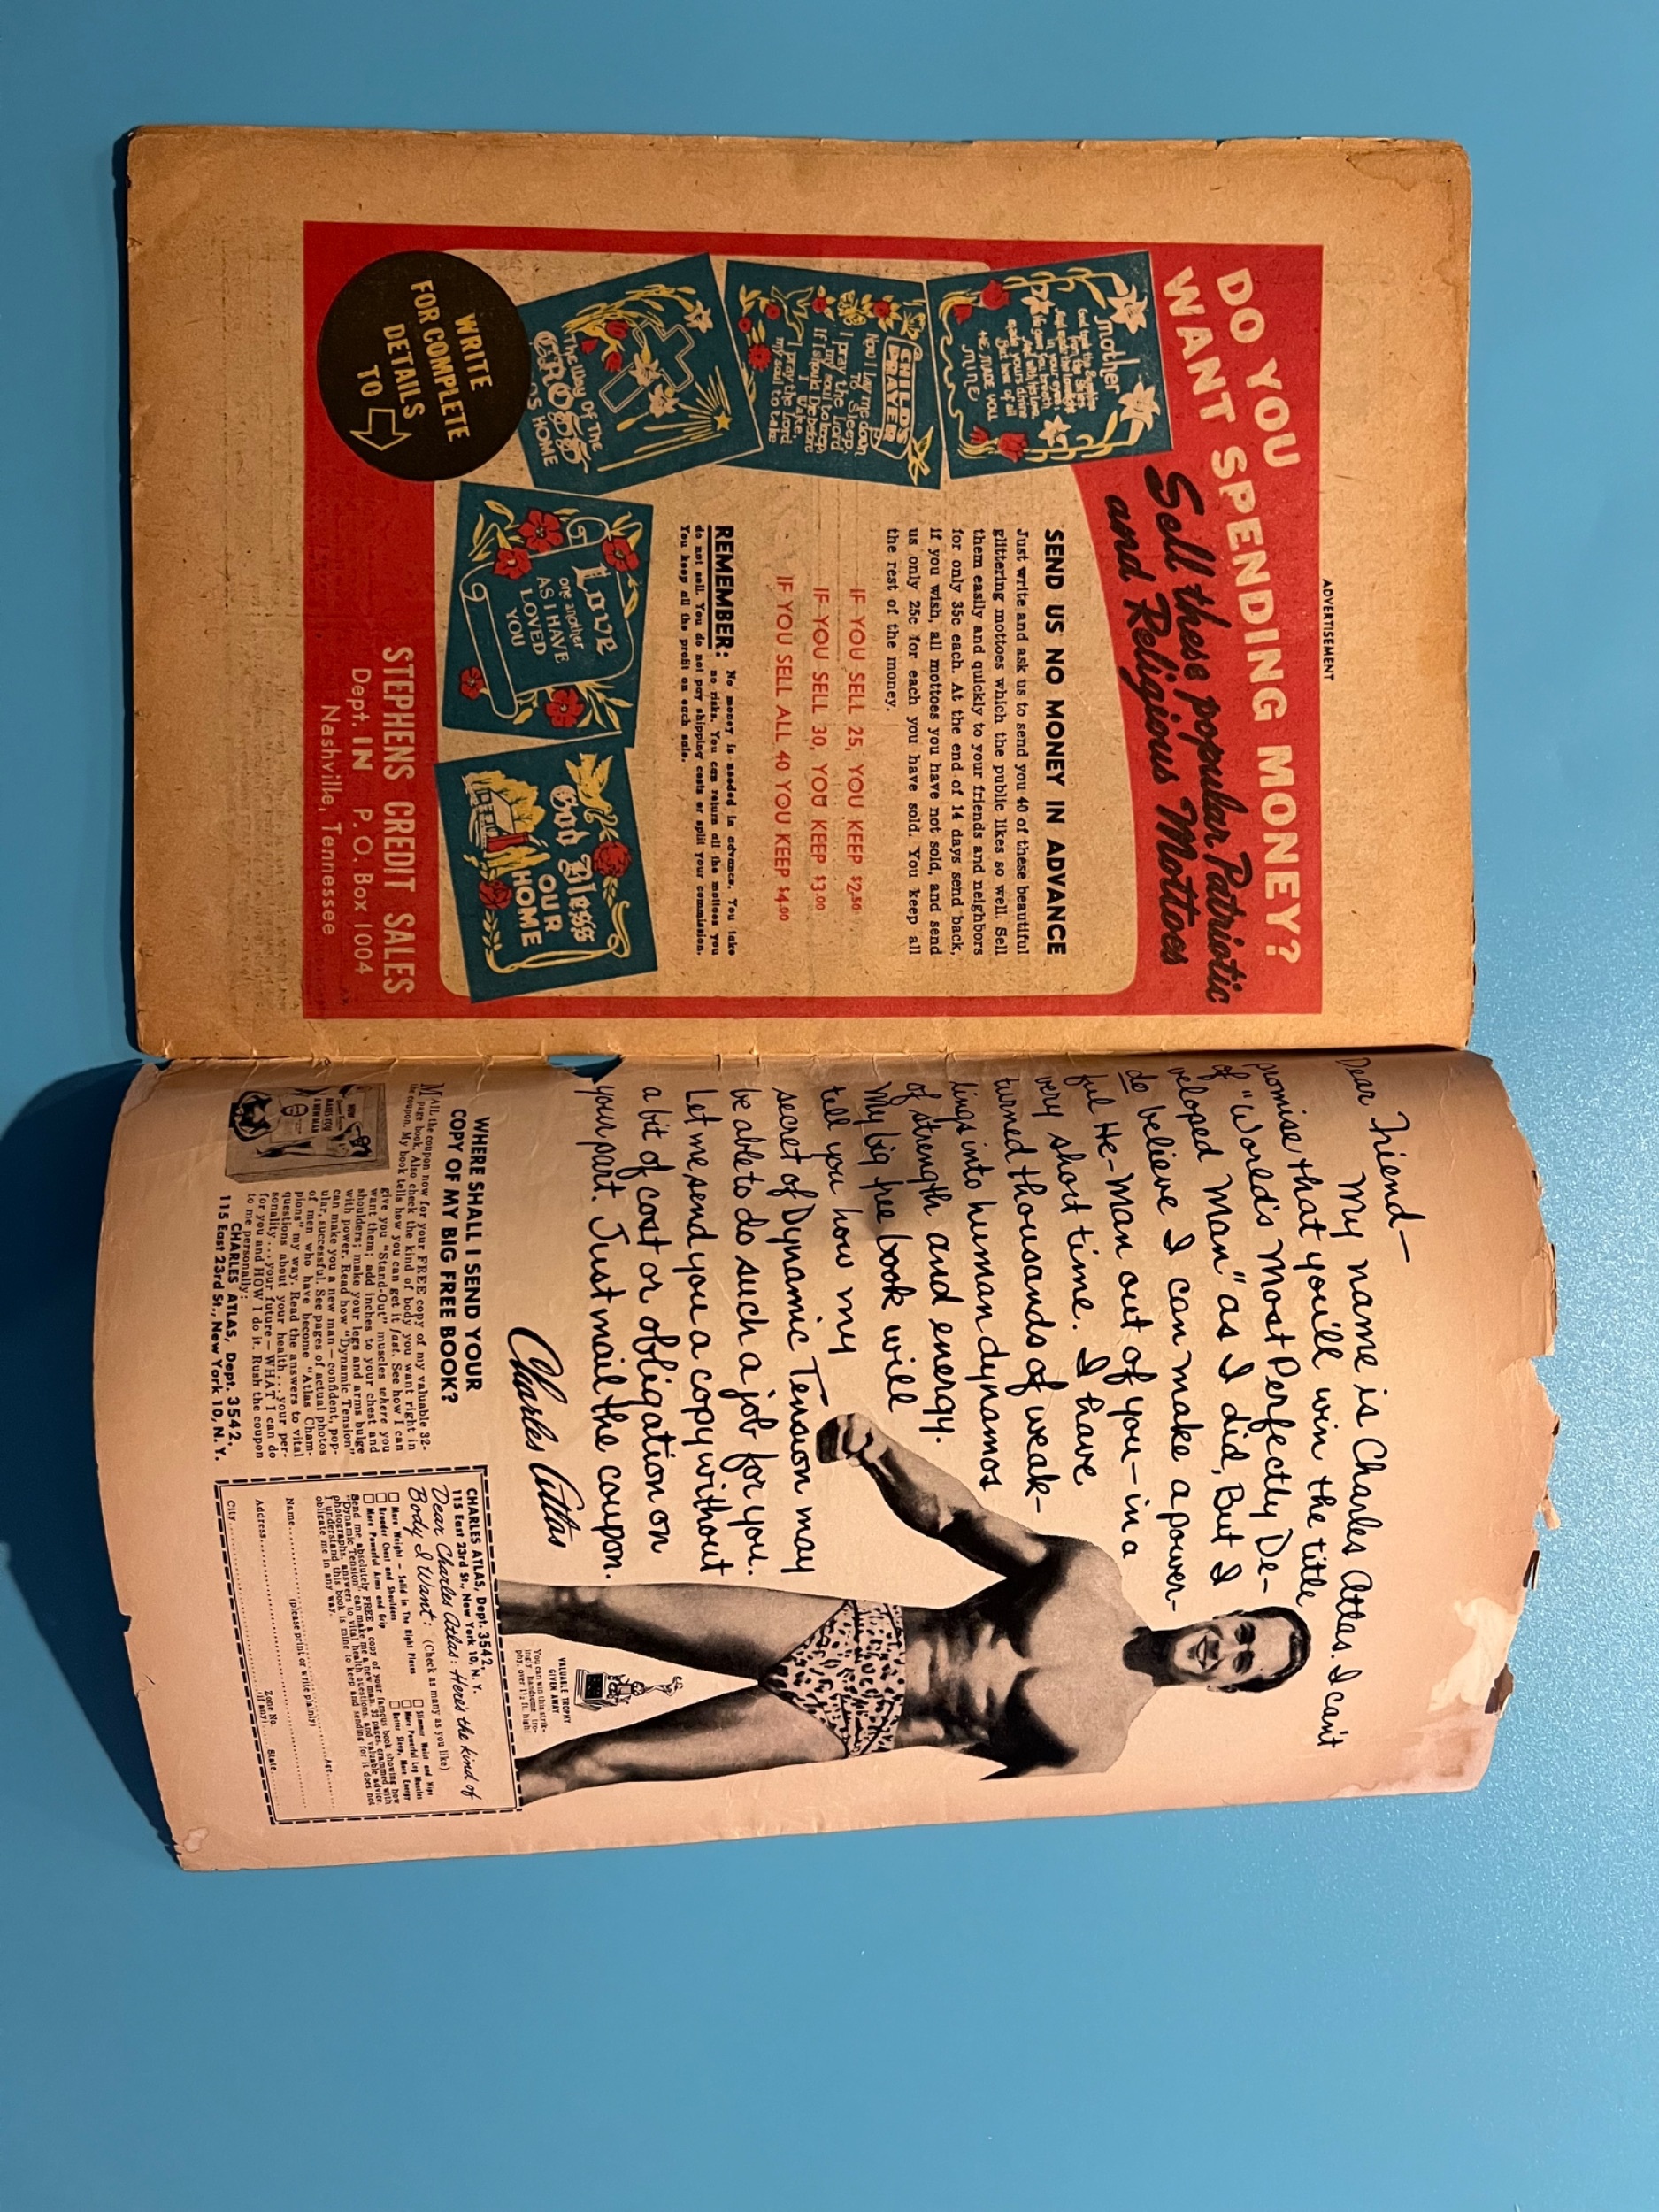 ADVERTISEMENT
DO YOU
WANT SPENDING MONEY?
Sell these popular Patriotic
and Religious Mottoes
mother
HE MADE YOU
MINE
CHILD'S
PRAYER
Now I lay me down
To Sleep,
I pray the Lord
my soul to keep
If I should Die before
I Wake,
I pray the Lord
my soul to take
The Way OF THE
CROSS
HOME
SEND US NO MONEY IN ADVANCE
Just write and ask us to send you 40 of these beautiful
glittering mottoes which the public likes so well. Sell
them easily and quickly to your friends and neighbors
for only 35c each. At the end of 14 days send back,
if you wish, all mottoes you have not sold, and send
us only 25c for each you have sold. You keep all
the rest of the money.
IF YOU SELL 25, YOU KEEP $2.50
IF YOU SELL 30, YOU KEEP $3.00
IF YOU SELL ALL 40 YOU KEEP $4.00
REMEMBER: No money is needed in advance. You take
no risks. You can return all the mottoes you
do not sell. You do not pay shipping costs or split your commission.
You keep all the profit on each sale.
WRITE
FOR COMPLETE
DETAILS
TO
Love
one another
AS I HAVE
LOVED
YOU
God Bless
OUR
HOME
STEPHENS CREDIT SALES
Dept. IN P. O. Box 1004
Nashville, Tennessee
Dear Friend—
My name is Charles Atlas. I can't
promise that you'll win the title
of "World's Most Perfectly De-
veloped Man" as I did, But I
do believe I can make a power-
ful He-Man out of you—in a
very short time. I have
turned thousands of weak-
lings into human dynamos
of strength and energy.
My big free book will
tell you how my
secret of Dynamic Tension may
be able to do such a job for you.
Let me send you a copy without
a bit of cost or obligation on
your part. Just mail the coupon.
Charles Atlas
VALUABLE TROPHY
GIVEN AWAY
You can win this strik-
ingly handsome tro-
phy, over 1½ ft. high!
WHERE SHALL I SEND YOUR
COPY OF MY BIG FREE BOOK?
MAIL the coupon now for your FREE copy of my valuable 32-
page book. Also check the kind of body you want right in
the coupon. My book tells how you can get it fast. See how I can
give you "Stand-Out" muscles where you
want them; add inches to your chest and
shoulders; make your legs and arms bulge
with power. Read how "Dynamic Tension"
can make you a new man—confident, pop-
ular, successful. See pages of actual photos
of men who have become "Atlas Cham-
pions" my way. Read the answers to vital
questions about your health...your per-
sonality...your future—WHAT I can do
for you and HOW I do it. Rush the coupon
to me personally:
CHARLES ATLAS, Dept. 3542,
115 East 23rd St., New York 10, N. Y.
CHARLES ATLAS, Dept. 3542,
115 East 23rd St., New York 10, N. Y.
Dear Charles Atlas: Here's the kind of
Body I Want: (Check as many as you like)
More Weight—Solid in The Right Places
Broader Chest and Shoulders
More Powerful Arms and Grip
Slimmer Waist and Hips
More Powerful Leg Muscles
Better Sleep, More Energy
Send me absolutely FREE a copy of your famous book showing how
"Dynamic Tension" can make me a new man. 32 pages, crammed with
photographs, answers to vital health questions, and valuable advice.
I understand this book is mine to keep and sending for it does not
obligate me in any way.
Name Age
(please print or write plainly)
Address
Zone No.
City (if any) State